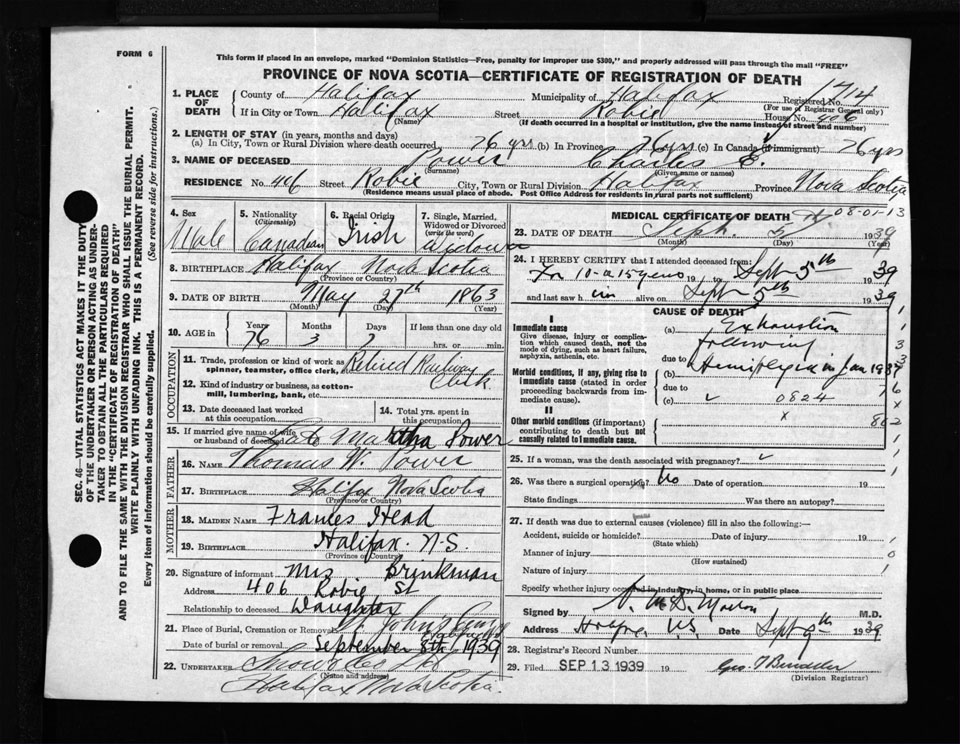 FORM 6
This form if placed in an envelope, marked "Dominion Statistics—Free, penalty for improper use $300," and properly addressed will pass through the mail "FREE"
PROVINCE OF NOVA SCOTIA—CERTIFICATE OF REGISTRATION OF DEATH
1. PLACE OF DEATH
County of Halifax Municipality of Halifax Registered No. 1714
(For use of Registrar General only)
If in City or Town Halifax Street Robie House No. 406
(Name) (If death occurred in a hospital or institution, give the name instead of street and number)
2. LENGTH OF STAY (in years, months and days)
(a) In City, Town or Rural Division where death occurred 76 yrs (b) In Province 76 yrs (c) In Canada (if immigrant) 76 yrs
3. NAME OF DECEASED Power Charles E.
(Surname) (Given name or names)
RESIDENCE No. 406 Street Robie City, Town or Rural Division Halifax Province Nova Scotia
(Residence means usual place of abode. Post Office Address for residents in rural parts not sufficient)
4. Sex
Male
5. Nationality
(Citizenship)
Canadian
6. Racial Origin
Irish
7. Single, Married, Widowed or Divorced
(write the word)
Widower
8. BIRTHPLACE Halifax Nova Scotia
(Province or Country)
9. DATE OF BIRTH May 27th 1863
(Month) (Day) (Year)
10. AGE in
Years Months Days If less than one day old
76 3 hrs. or min.
OCCUPATION
11. Trade, profession or kind of work as spinner, teamster, office clerk, etc. Retired Railway Clerk
12. Kind of industry or business, as cotton-mill, lumbering, bank, etc.
13. Date deceased last worked at this occupation
14. Total yrs. spent in this occupation
15. If married give name of wife or husband of deceased Late Martha Power
FATHER
16. NAME Thomas W. Power
17. BIRTHPLACE Halifax Nova Scotia
(Province or Country)
MOTHER
18. MAIDEN NAME Frances Head
19. BIRTHPLACE Halifax. N.S.
(Province or Country)
20. Signature of informant Mrs Brinkman
Address 406 Robie St
Relationship to deceased Daughter
21. Place of Burial, Cremation or Removal St Johns
Date of burial or removal September 8th 1939
22. UNDERTAKER Snow & Co Ltd
(Name and address)
Halifax Nova Scotia.
MEDICAL CERTIFICATE OF DEATH 08-01-13
23. DATE OF DEATH Sept. 5 1939
(Month) (Day) (Year)
24. I HEREBY CERTIFY that I attended deceased from:
For 10-a 15 years 19 to Sept 5th 1939
and last saw him alive on Sept 5th 1939
CAUSE OF DEATH
I
Immediate cause
Give disease, injury or complication which caused death, not the mode of dying, such as heart failure, asphyxia, asthenia, etc.
(a) Exhaustion
following
due to
Morbid conditions, if any, giving rise to immediate cause (stated in order proceeding backwards from immediate cause).
(b) Hemiplegia in Jan 1937
due to
(c) 0824
II
Other morbid conditions (if important) contributing to death but not causally related to immediate cause. x
25. If a woman, was the death associated with pregnancy?
26. Was there a surgical operation? No Date of operation 19
State findings Was there an autopsy?
27. If death was due to external causes (violence) fill in also the following:—
Accident, suicide or homicide? Date of injury 19
(State which)
Manner of injury
(How sustained)
Nature of injury
Specify whether injury occurred in industry, in home, or in public place
Signed by M.D.
Address Halifax N.S. Date Sept 9th 1939
28. Registrar's Record Number
29. Filed SEP 13 1939 19
(Division Registrar)
SEC. 46—VITAL STATISTICS ACT MAKES IT THE DUTY
OF THE UNDERTAKER OR PERSON ACTING AS UNDER-
TAKER TO OBTAIN ALL THE PARTICULARS REQUIRED
IN THE "CERTIFICATE OF REGISTRATION OF DEATH"
AND TO FILE THE SAME WITH THE DIVISION REGISTRAR WHO SHALL ISSUE THE BURIAL PERMIT.
WRITE PLAINLY WITH UNFADING INK. THIS IS A PERMANENT RECORD.
Every item of information should be carefully supplied. (See reverse side for instructions.)